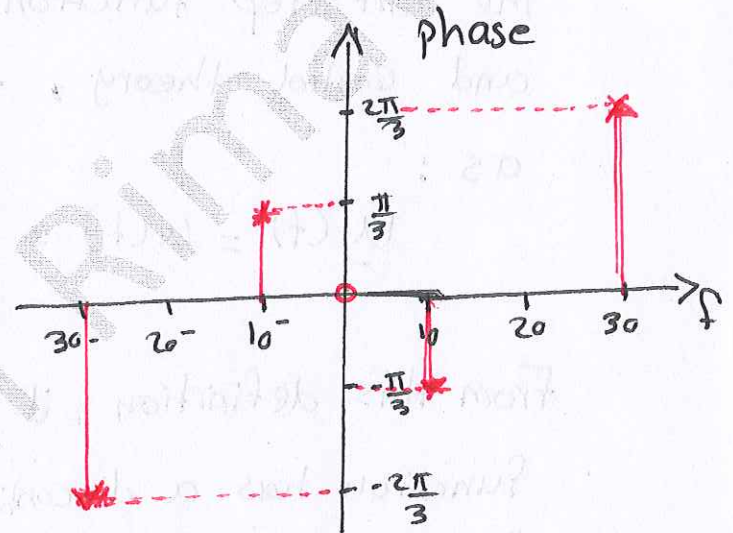 phase
2π/3
π/3
30- 20- 10- 10 20 30 f
-π/3
-2π/3
Rima